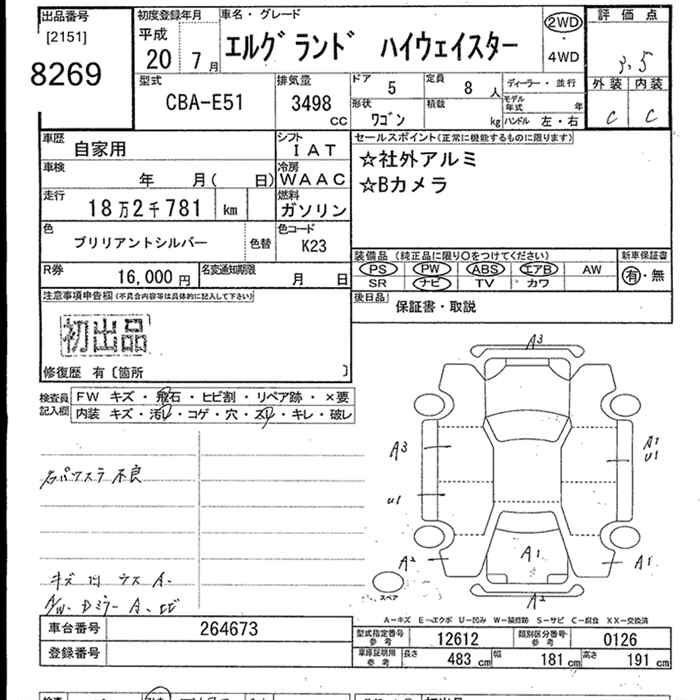 出品番号 初度登録年月 車名・グレード 評価点
[2151] 平成 エルグランド ハイウェイスター 2WD
8269 20年 7月 ・ 4WD 3.5
型式 排気量 ドア 5 定員 8人 ディーラー・並行 外装 内装
CBA-E51 3498cc 形状 ワゴン 積載 kg モデル年式 年 C C
ハンドル 左・右
車歴 自家用 シフト IAT セールスポイント(正常に機能するものに限ります)
車検 年 月( 日) 冷房 WAAC ☆社外アルミ
走行 18万2千781 km 燃料 ガソリン ☆Bカメラ
色 ブリリアントシルバー 色替 色コード K23
装備品(純正品に限り○をつけてください) 新車保証書
R券 16,000円 名変通知期限 月 日 PS PW ABS エアB AW 有・無
SR ナビ TV カワ
注意事項申告欄(不具合内容等は具体的に記入して下さい) 後日品 保証書・取説
初出品
修復歴 有〔箇所 〕
検査員記入欄 FW キズ・飛石・ヒビ割・リペア跡・×要
内装 キズ・汚レ・コゲ・穴・スレ・キレ・破レ
A3
A3 A1
U1
右パワステ不良
U1
A2 A1 A1
スペア
A2
A-キズ E-エクボ U-凹み W-補修跡 S-サビ C-腐食 XX-交換済
車台番号 264673 型式指定番号 参考 12612 類別区分番号 参考 0126
登録番号 車庫証明用 参考 長さ 483cm 幅 181cm 高さ 191cm